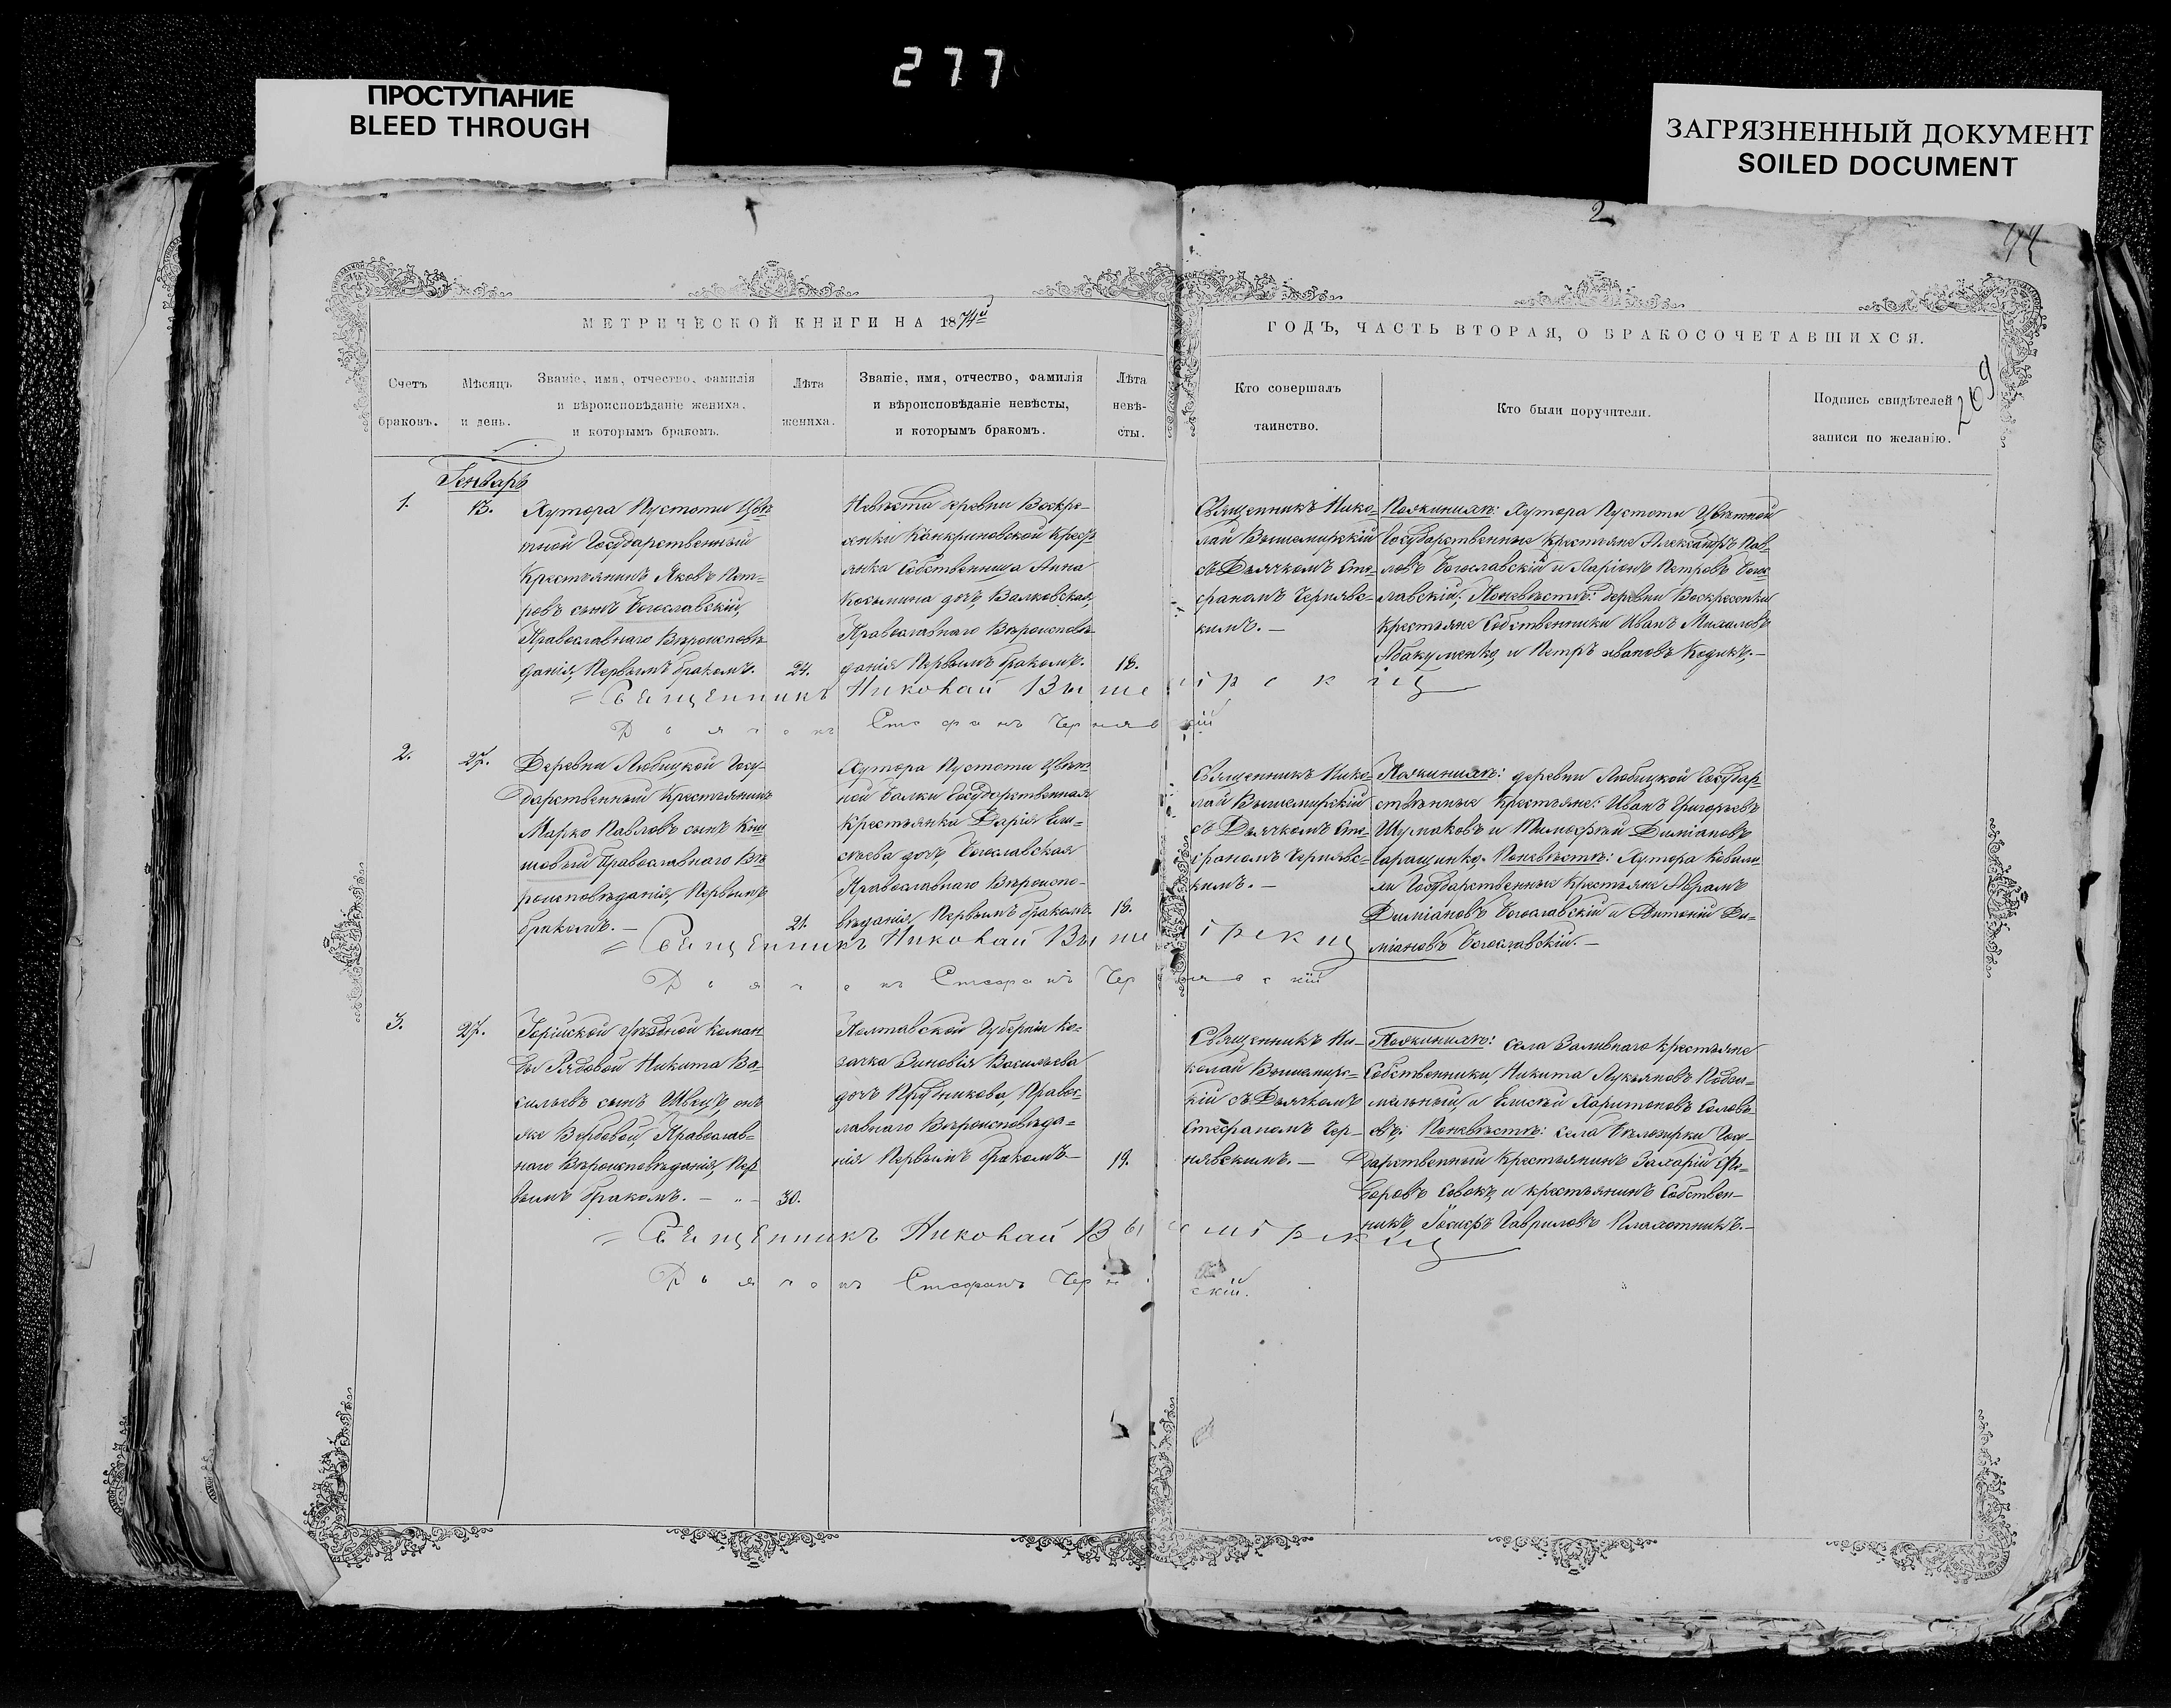 277
ПРОСТУПАНИЕ
BLEED THROUGH
ЗАГРЯЗНЕННЫЙ ДОКУМЕНТ
SOILED DOCUMENT
2
269
МЕТРИЧЕСКОЙ КНИГИ НА 1874й
ГОДЪ, ЧАСТЬ ВТОРАЯ, О БРАКОСОЧЕТАВШИХСЯ.
Счетъ
браковъ.
Мѣсяцъ
и день.
Званіе, имя, отчество, фамилія
и вѣроисповѣданіе жениха,
и которымъ бракомъ.
Лѣта
жениха.
Званіе, имя, отчество, фамилія
и вѣроисповѣданіе невѣсты,
и которымъ бракомъ.
Лѣта
невѣ-
сты.
Кто совершалъ
таинство.
Кто были поручители.
Подпись свидѣтелей
записи по желанію.
Генварь
1.
13.
Хутора Пустоти Цвѣ
тной Государственный
Крестьянинъ Яковъ Пет-
ровъ сынъ Богославскій,
Православнаго Вѣроисповѣ
данія, Первымъ бракомъ.
24.
Невѣста деревни Воскре-
сенки Канкриновской Крест
янка Собственница Анна
Косьмина дочь, Валковская,
Православнаго Вѣроисповѣ
данія Первымъ бракомъ.
18.
Священникъ Нико-
лай Вышемирскій
съ Дьячкомъ Сте-
фаномъ Чернявс-
кимъ. —
Поженихѣ: Хутора Пустоти Цвѣтной
Государственные Крестьяне Александръ Пав-
ловъ Богославскій и Ларіонъ Петровъ Бого-
славскій; Поневѣстѣ: деревни Воскресенки
Крестьяне Собственники Иванъ Михаиловъ
Абакуменко, и Петръ Ивановъ Кодикъ. —
= Священникъ Николай Вышемірскій
Дьячокъ Стефанъ Чернявскій
2.
27.
Деревни Любицкой Госу-
дарственный Крестьянинъ
Марко Павловъ сынъ Кни
шовый Православнаго Вѣ
роисповѣданія, Первымъ
бракомъ. —
21.
Хутора Пустоти Цвѣт
ной балки Государственная
Крестьянка Дарія Ели-
сѣева дочь Богославская
Православнаго Вѣроиспо-
вѣданія, Первымъ бракомъ.
18.
Священникъ Нико-
лай Вышемирскій
съ Дьячкомъ Сте-
фаномъ Чернявс-
кимъ. —
Поженихѣ: деревни Любицкой Государ-
ственные Крестьяне: Иванъ Григорьевъ
Шумаковъ и Тимофѣй Диміановъ
Гаращинко. Поневѣстѣ: Хутора Ковали
ли Государственные Крестьяне Аврамъ
Диміановъ Богославскій и Антоній Ди-
міановъ Богославскій. —
= Священникъ Николай Вышемірскій
Дьячокъ Стефанъ Чернявскій
3.
27.
Горійской уѣздной Коман
ды Рядовой Никита Ва-
сильевъ сынъ Швецъ, онъ
же Вербовой, Православ-
наго Вѣроисповѣданія, Пер
вымъ бракомъ. —
30.
Полтавской Губерніи Ко-
зачка Зиновія Васильева
дочь Прудникова, Правос-
лавнаго Вѣроисповѣда-
нія Первымъ бракомъ. —
19.
Священникъ Ни-
колай Вышемирс-
кій съ Дьячкомъ
Стефаномъ Чер-
нявскимъ. —
Поженихѣ: села Заливнаго крестьяне
Собственники, Никита Лукьяновъ
и Елисѣй Харитоновъ Соловь
евъ; Поневѣстѣ: села Бѣлозирки Госу-
дарственный Крестьянинъ Захарій Фе-
доровъ Совокъ, и крестьянинъ Собствен-
никъ, Іосифъ Гавриловъ Плахотникъ. —
= Священникъ Николай Вышемірскій
Дьячокъ Стефанъ Чернявскій.